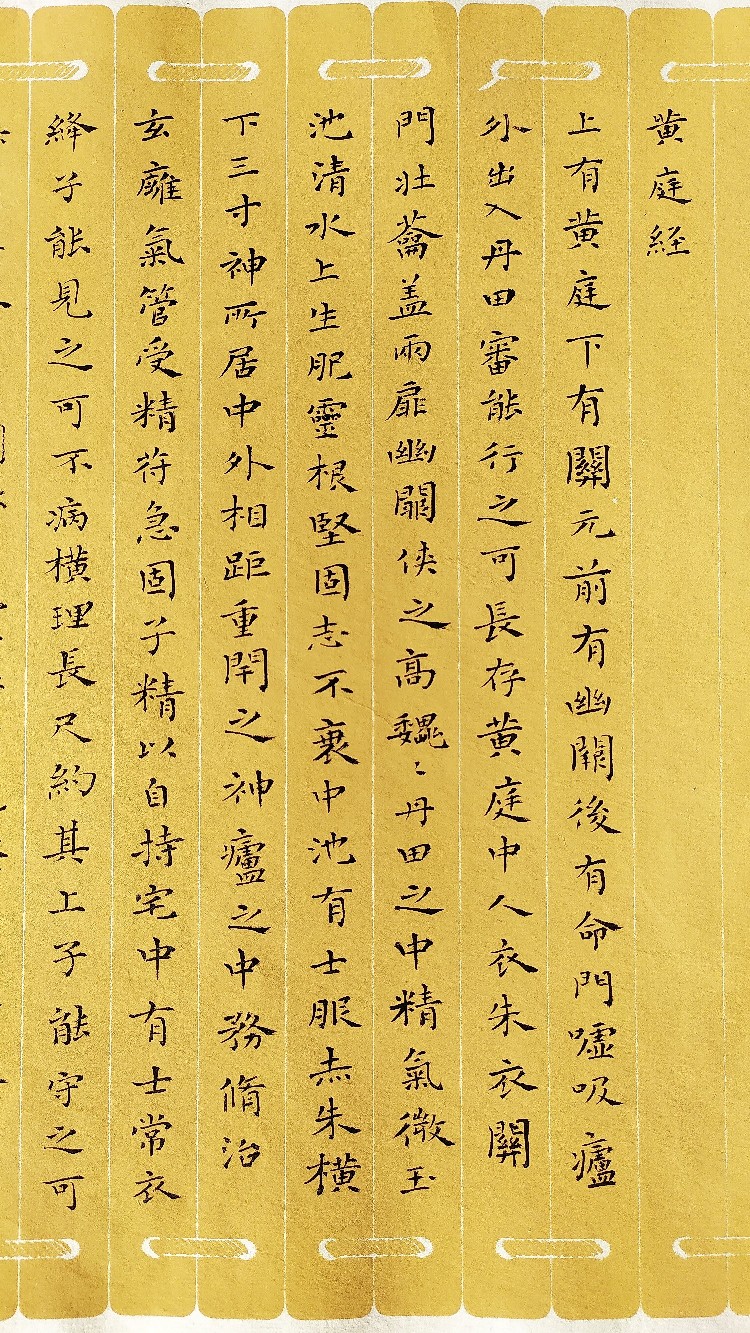 黄庭経
上有黄庭下有關元前有幽關後有命門噓吸廬
外出入丹田審能行之可長存黄庭中人衣朱衣關
門壯蘥盖兩扉幽闗俠之高巍〻丹田之中精氣微玉
池清水上生肥靈根堅固志不衰中池有士服赤朱横
下三寸神所居中外相距重閇之神廬之中務脩治
玄廱氣管受精苻急固子精以自持宅中有士常衣
絳子能見之可不病横理長尺約其上子能守之可